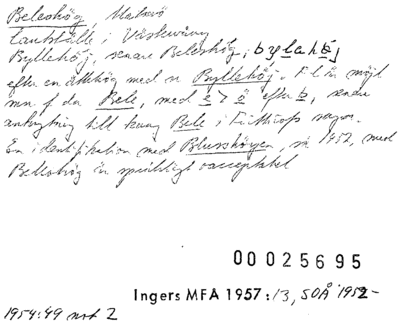 Beleshög, Malmö
lantställe i Västervång
Byllehöj, senare Beleshög; bylahöj
efter en ättehög med nn Byllehöj. F l är möjl
mn. f da Bele, med e > ö efter b, senare
anknytning till kung Bele i Frithiofs saga.
En identifikation med Blusshögen, så 1952, med
Belleshög är språkligt oacceptabel
00025695
Ingers MFA 1957: 13, SOÅ 1952-
1954:49 not 2